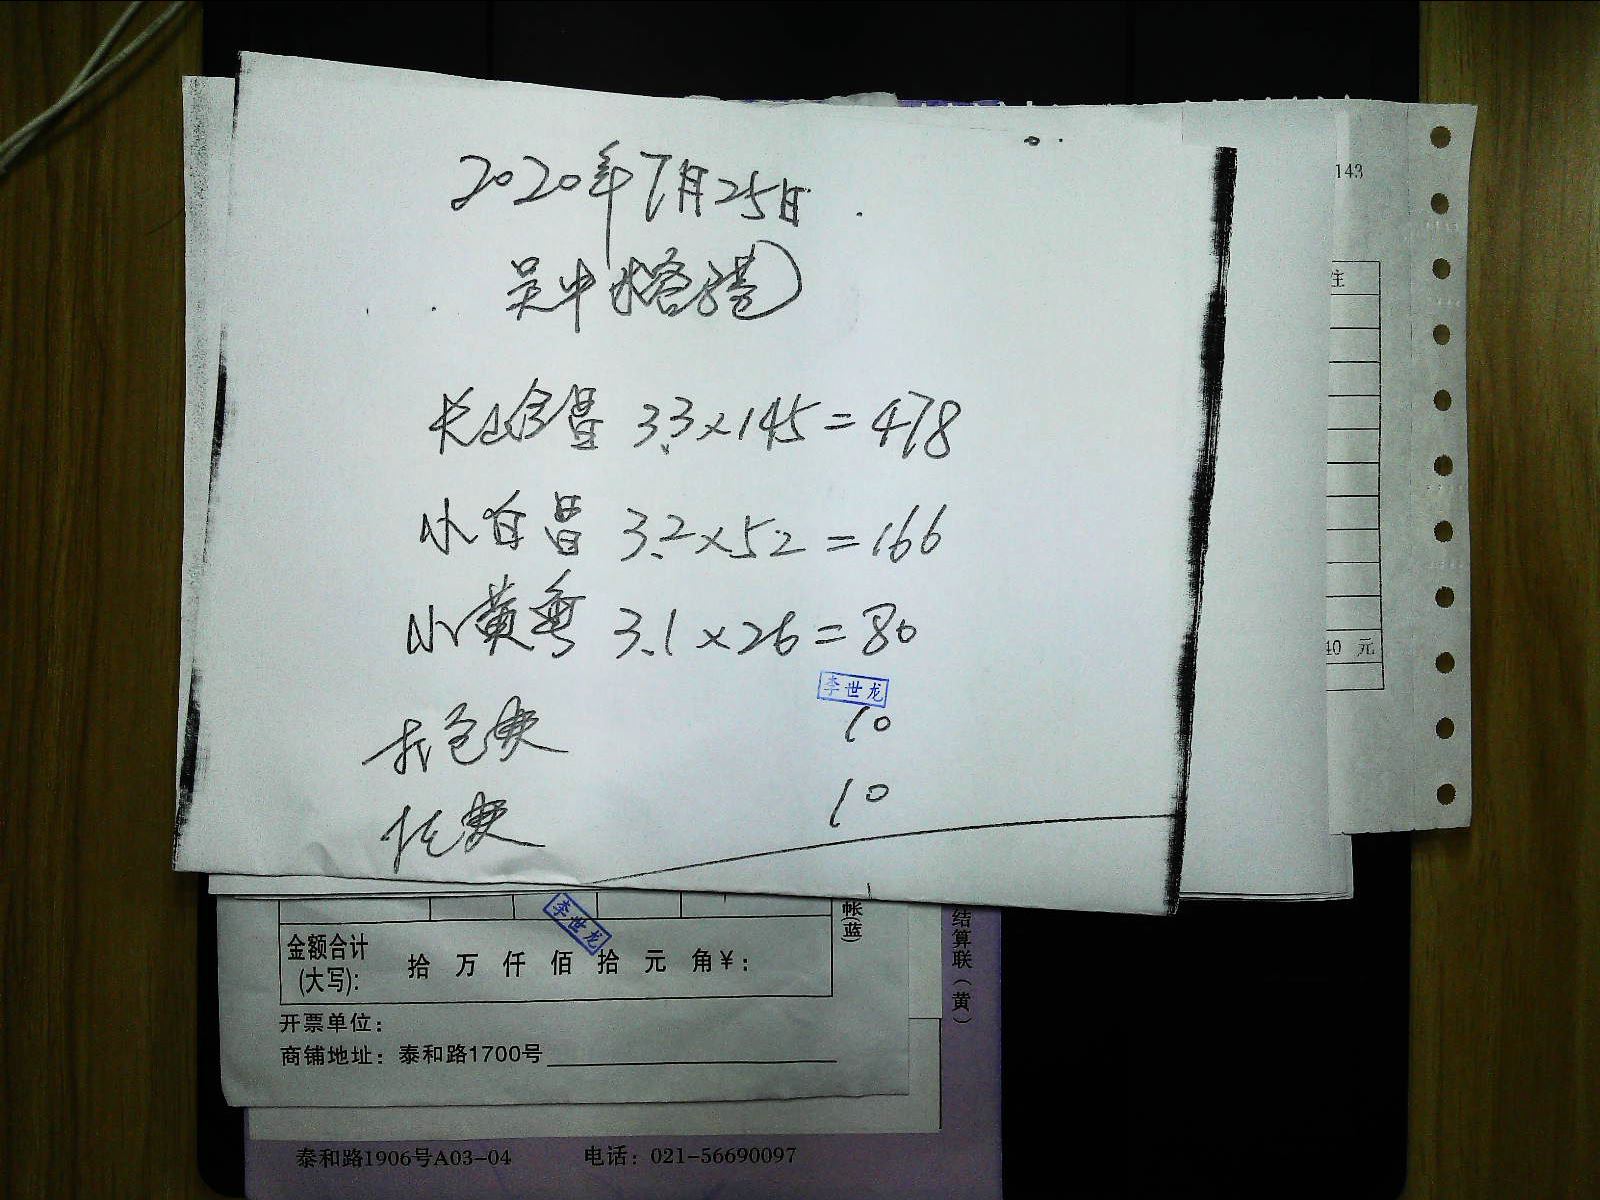 2020年7月25日
吴中水
3.3×145=478
小白 3.2×52=166
小黄 3.1×26=80
李世龙
打包费 10
托费 10
143
注
40 元
帐(蓝)
结算联(黄)
李世龙
金额合计
(大写):
拾 万 仟 佰 拾 元 角¥:
开票单位:
商铺地址: 泰和路1700号
泰和路1906号A03-04 电话: 021-56690097